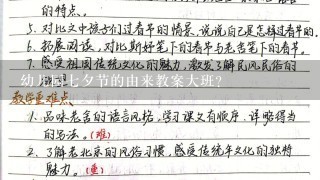 的特点。
5. 对比文中孩子们过春节的情景,说说自己是怎样过春节的。
6. 拓展阅读,对比斯好笔下的春节与老舍笔下的春节。
7. 感受祖国传统文化的魅力,激发了解民风民俗的
幼儿园七夕节的由来教案大班?
教学重难点
1. 品味老舍的语言风格,学习课文有顺序、详略得当
的写法。(难)
2. 了解老北京的风俗习惯,感受传统年文化的独特
魅力。(重)